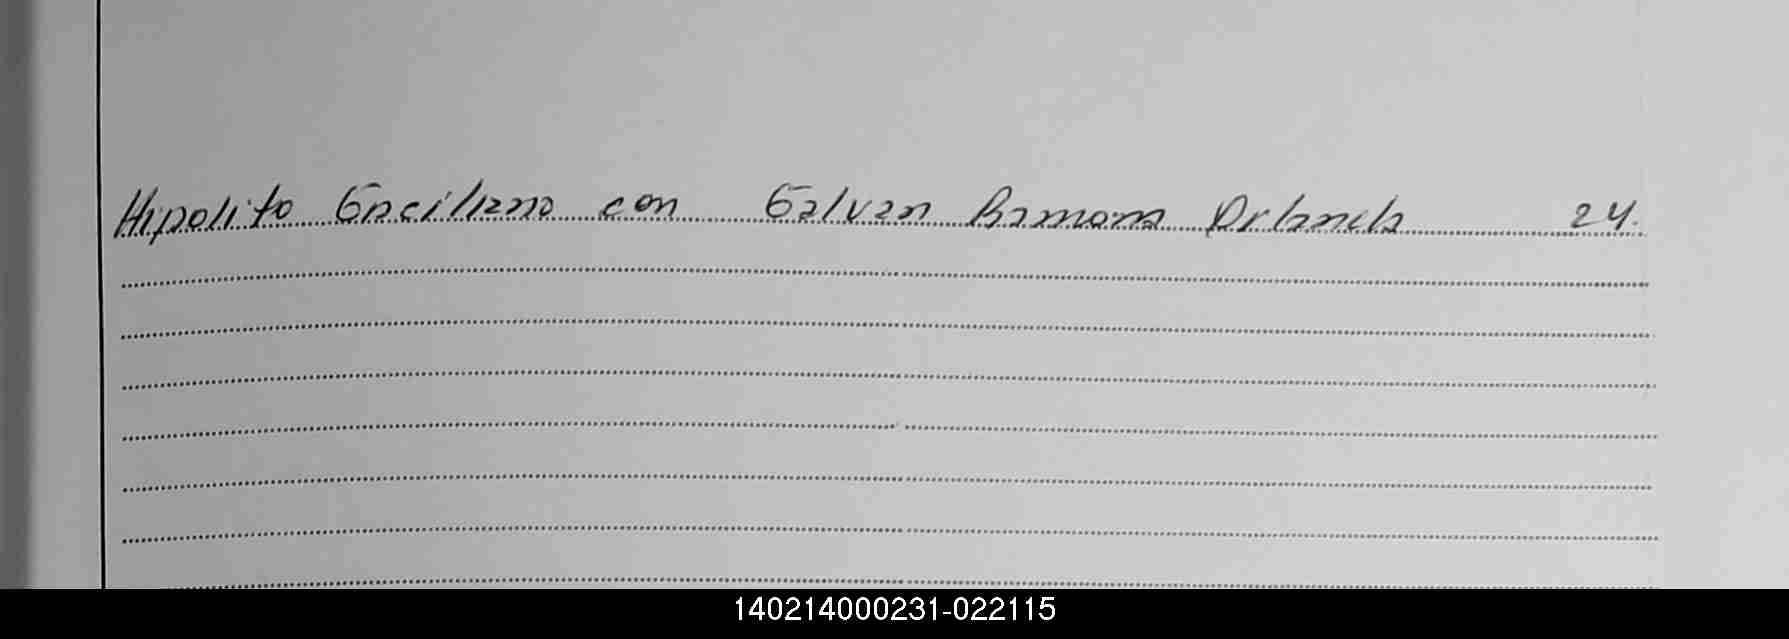 Hipolito Graciliano con Galvan Ramona Orlanda 24.
140214000231-022115